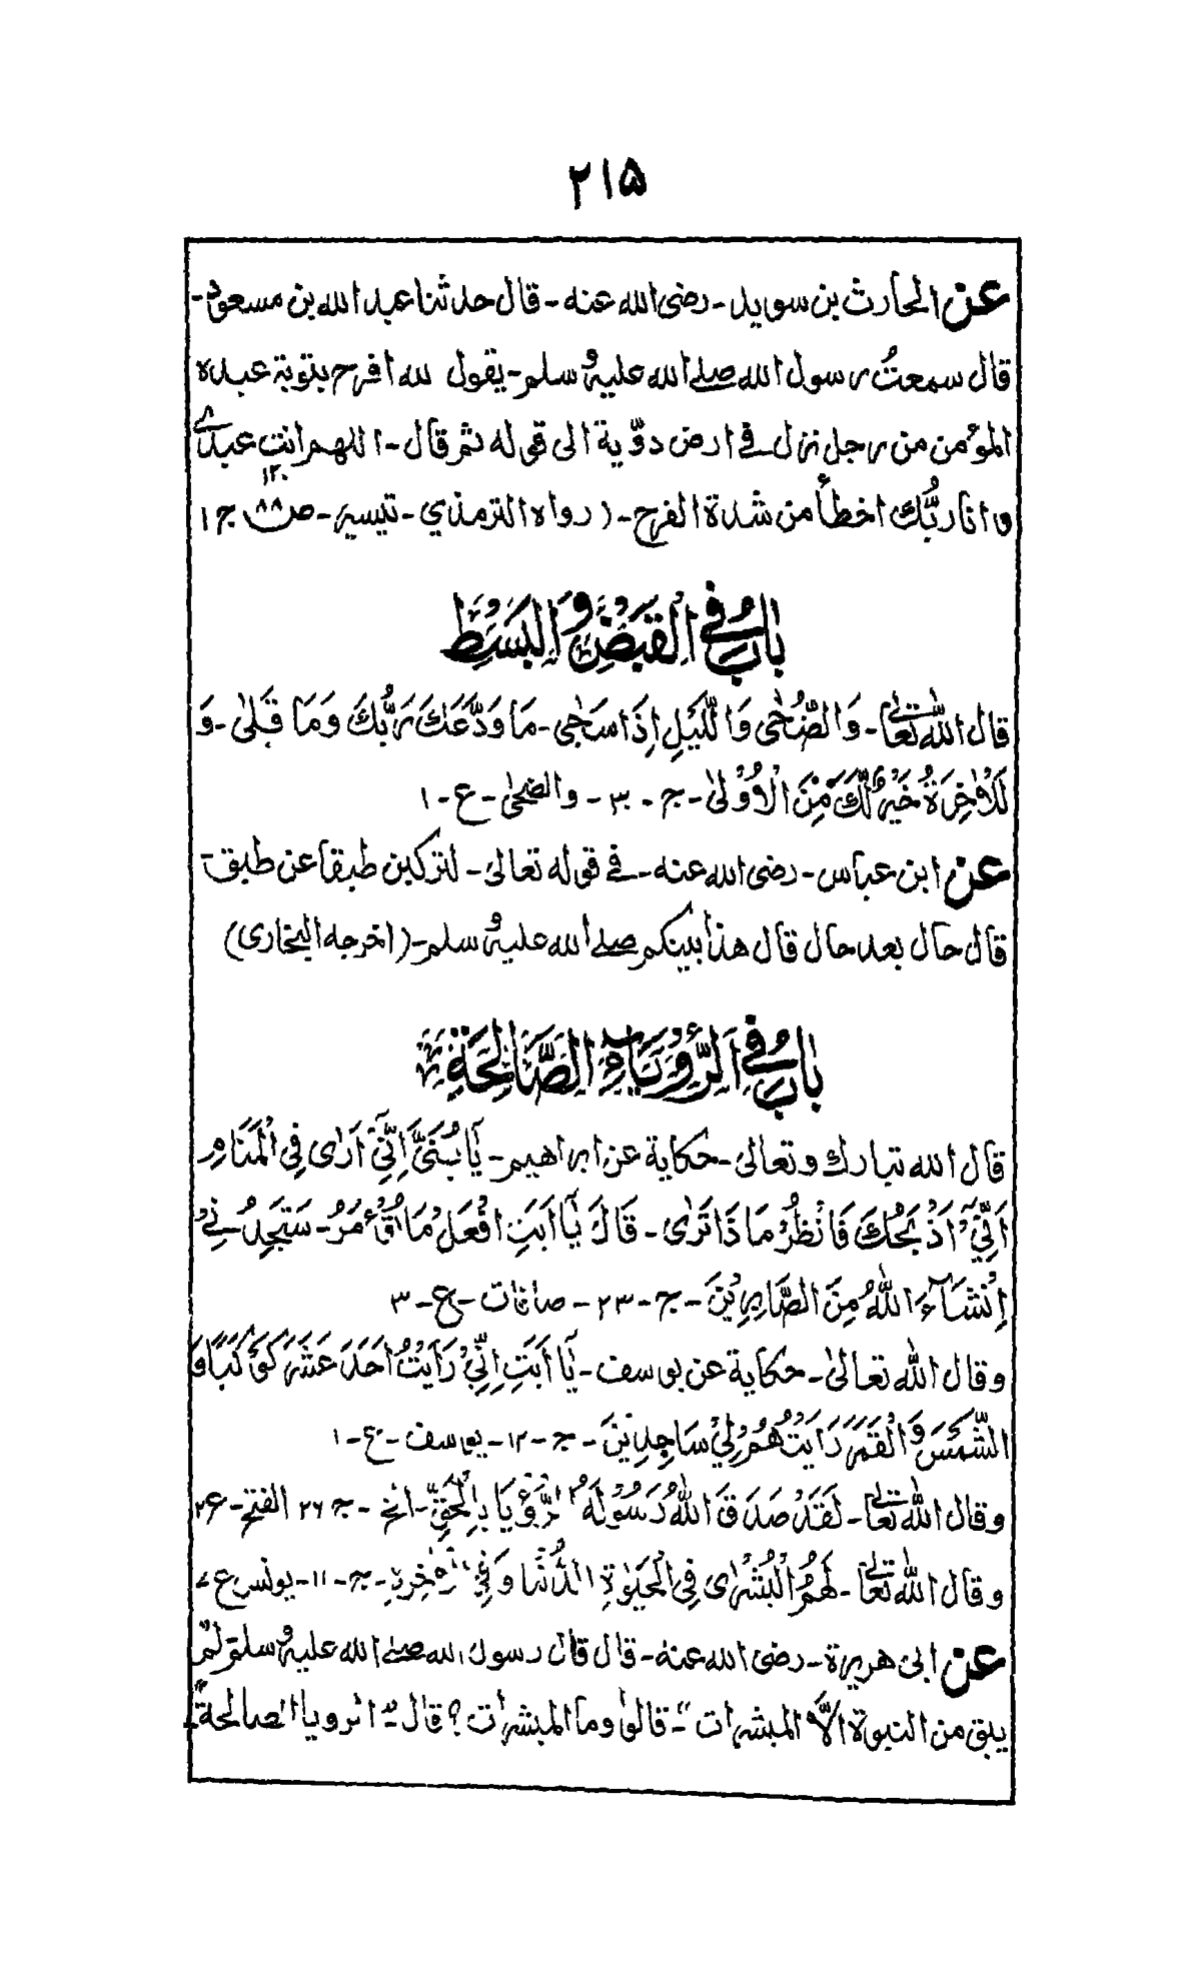 ۲۱۵
عن الحارث بن سوید۔ رضی الله عنه۔ قال حدثنا عبد الله بن مسعود۔
قال سمعتُ رسول الله صلے الله علیہ وسلم۔ یقول لله افرح بتوبة عبده
المؤمن من رجل نزل فے ارض دوّیة الی قوله ثم قال۔ اللهم انت عبدی
وانا ربُّك اخطأ من شدة الفرح۔ (رواه الترمذي۔ تیسیر۔ ص ۸۸ ج ۱
۱۲۰
بابٌ فے القَبضِ وَالبَسْطِ
قال اللّٰه تعالیٰ۔ وَالضُّحٰی وَالَّلیَلِ اِذَا سَجٰی۔ مَا وَدَّعَكَ رَبُّكَ وَمَا قَلٰی۔ وَ
لَلْاٰخِرَةُ خَیْرٌ لَّكَ مِّنَ الْاُوْلیٰ۔ ج۔ ۳۰۔ والضحیٰ۔ ع۔ ۱
عن ابن عباس۔ رضی الله عنه۔ فے قوله تعالیٰ۔ لترکبن طبقا عن طبق۔
قال حال بعد حال قال هذا بینکم صلے الله علیہ وسلم۔ (اخرجه البخاری)
بابٌ فے الرُّوْیَاءِ الصَّالِحَةِ
قال الله تبارك وتعالی۔ حکایة عن ابراهیم۔ یَابُنَیَّ اِنِّیْ اَرٰی فِی الْمَنَامِ
اَنِّیْ اَذْبَحُكَ فَانْظُرْ مَاذَا تَرٰی۔ قَالَ یَا اَبَتِ افْعَلْ مَا تُؤْمَرُ۔ سَتَجِدُنِیْ
اِنْشَآءَ اللّٰهُ مِنَ الصَّابِرِیْنَ۔ ج۔ ۲۳۔ صافات۔ ع۔ ۳
وقال اللّٰه تعالیٰ۔ حکایة عن یوسف۔ یَا اَبَتِ اِنِّیْ رَاَیْتُ اَحَدَ عَشَرَ کَوْکَبًا وَ
الشَّمْسَ وَالْقَمَرَ رَاَیْتُهُمْ لِیْ سَاجِدِیْنَ۔ ج۔ ۱۲۔ یوسف۔ ع۔ ۱
وقال اللّٰه تعالیٰ۔ لَقَدْ صَدَقَ اللّٰهُ رَسُوْلَهُ الرُّؤْیَا بِالْحَقِّ۔ الخ۔ ج ۲۶ الفتح۔ ع
وقال اللّٰه تعالیٰ۔ لَهُمُ الْبُشْرٰی فِی الْحَیٰوةِ الدُّنْیَا وَفِی الْاٰخِرةِ۔ ج۔ ۱۱۔ یونس ع ۷
عن ابی هریرة۔ رضی الله عنهٗ۔ قال قال رسول الله صلے الله علیہ وسلم "لم
یبق من النبوة الاَّ المبشرات"۔ قالوا وما المبشرات؟ قال۔ "الرویا الصالحة"۔